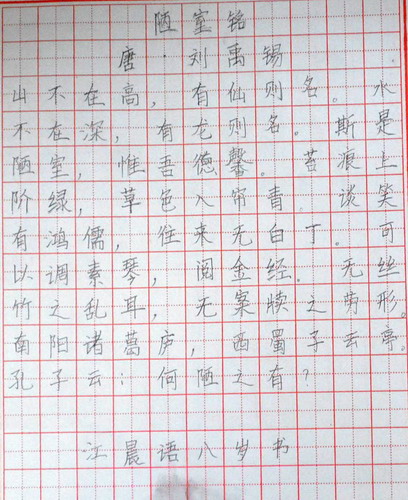 陋室铭
唐·刘禹锡
山不在高，有仙则名。水
不在深，有龙则名。斯是
陋室，惟吾德馨。苔痕上
阶绿，草色入帘青。谈笑
有鸿儒，住来无白丁。可
以调素琴，阅金经。无丝
竹之乱耳，无案牍之劳形。
南阳诸葛庐，西蜀子云亭。
孔子云：何陋之有？
江晨语八岁书